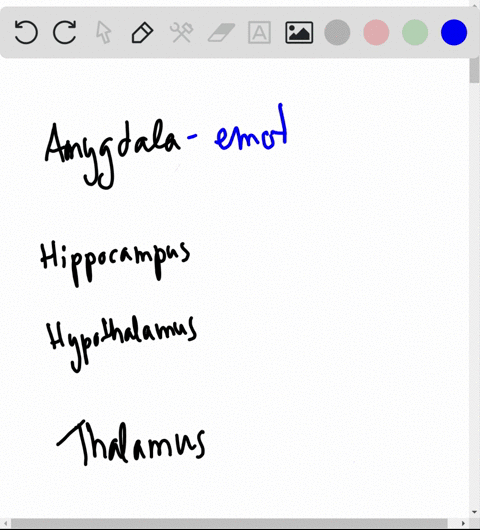 Amygdala - emot
Hippocampus
Hypothalamus
Thalamus